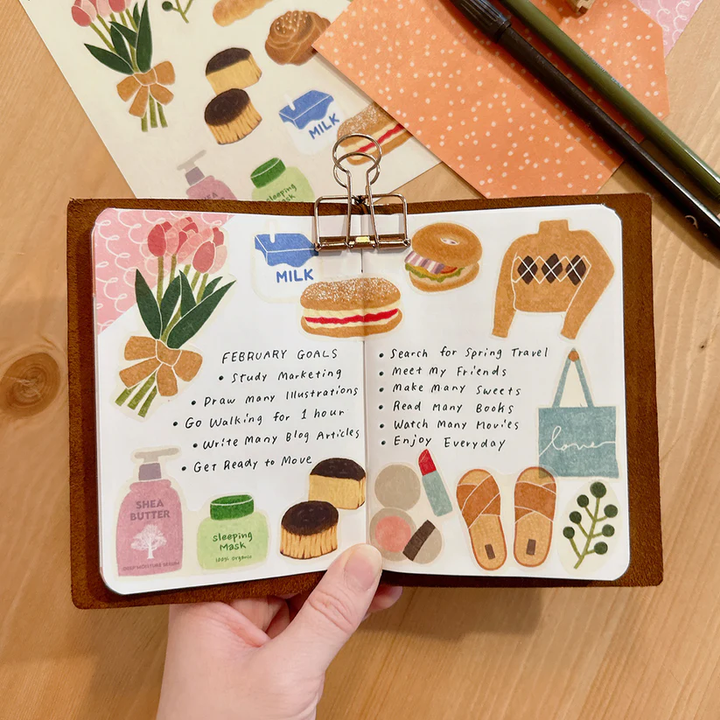 MILK
sleeping
Mask
MILK
FEBRUARY GOALS
• Study Marketing
• Draw many Illustrations
• Go Walking for 1 hour
• Write Many Blog Articles
• Get Ready to Move
SHEA
BUTTER
sleeping
Mask
100% organic
• Search for Spring Travel
• Meet My Friends
• Make Many Sweets
• Read Many Books
• Watch Many Movies
• Enjoy Everyday
love